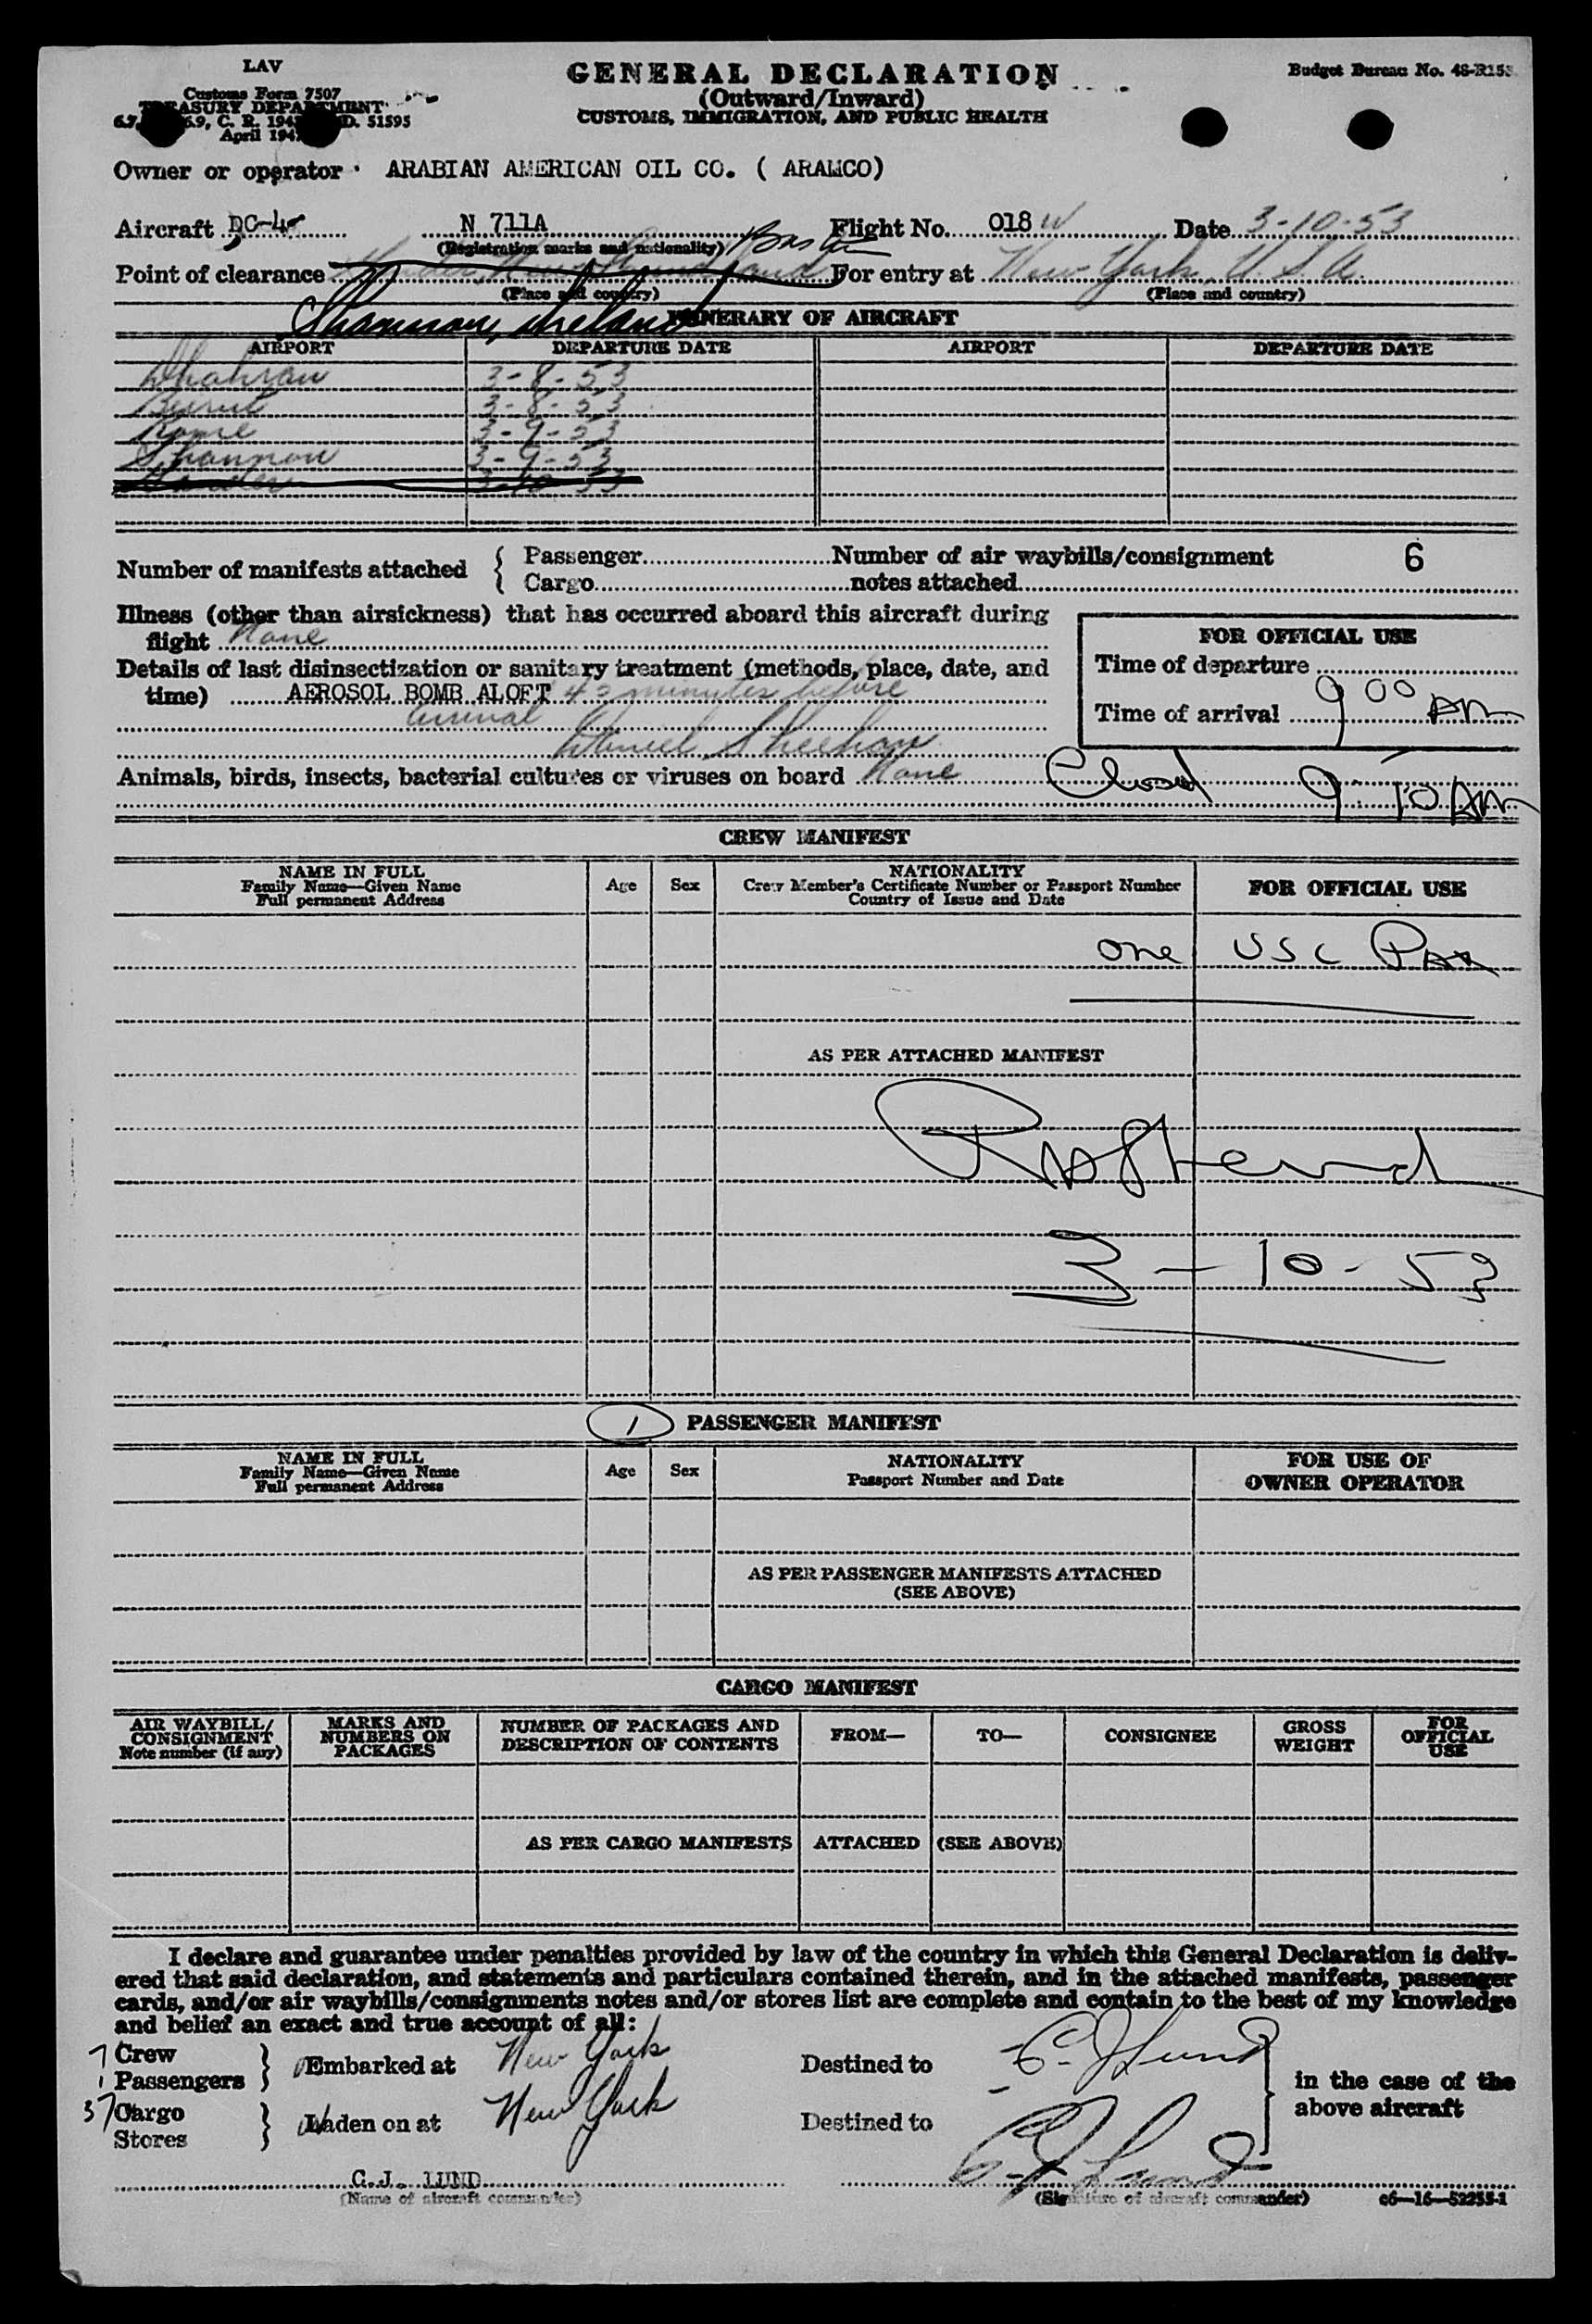 LAV
Customs Form 7507
TREASURY DEPARTMENT
C. R. 194 D. 51595
April 194
GENERAL DECLARATION
(Outward/Inward)
CUSTOMS, IMMIGRATION, AND PUBLIC HEALTH
Budget Bureau No. 48-R153
Owner or operator ARABIAN AMERICAN OIL CO. ( ARAMCO)
Aircraft DC-4 N 711A Flight No. 018 W Date 3-10-53
(Registration marks and nationality)
Point of clearance Gander, Newfoundland For entry at New York, U.S.A.
(Place and country) (Place and country)
Shannon, Ireland
ITINERARY OF AIRCRAFT
AIRPORT DEPARTURE DATE AIRPORT DEPARTURE DATE
Dhahran 3-8-53
Beirut 3-8-53
Rome 3-9-53
Shannon 3-9-53
Gander 3-10-53
Number of manifests attached { Passenger Number of air waybills/consignment 6
Cargo notes attached
Illness (other than airsickness) that has occurred aboard this aircraft during
flight None
Details of last disinsectization or sanitary treatment (methods, place, date, and
time) AEROSOL BOMB ALOFT 45 minutes before
arrival
Daniel Sheehan
FOR OFFICIAL USE
Time of departure
Time of arrival 9 00 AM
Animals, birds, insects, bacterial cultures or viruses on board None
Closed 9:10 AM
CREW MANIFEST
NAME IN FULL
Family Name—Given Name
Full permanent Address
Age Sex
NATIONALITY
Crew Member's Certificate Number or Passport Number
Country of Issue and Date
FOR OFFICIAL USE
One USC Pax
AS PER ATTACHED MANIFEST
3-10-53
1 PASSENGER MANIFEST
NAME IN FULL
Family Name—Given Name
Full permanent Address
Age Sex
NATIONALITY
Passport Number and Date
FOR USE OF
OWNER OPERATOR
AS PER PASSENGER MANIFESTS ATTACHED
(SEE ABOVE)
CARGO MANIFEST
AIR WAYBILL/
CONSIGNMENT
Note number (if any)
MARKS AND
NUMBERS ON
PACKAGES
NUMBER OF PACKAGES AND
DESCRIPTION OF CONTENTS
FROM— TO— CONSIGNEE
GROSS
WEIGHT
FOR
OFFICIAL
USE
AS PER CARGO MANIFESTS ATTACHED (SEE ABOVE)
I declare and guarantee under penalties provided by law of the country in which this General Declaration is deliv-
ered that said declaration, and statements and particulars contained therein, and in the attached manifests, passenger
cards, and/or air waybills/consignments notes and/or stores list are complete and contain to the best of my knowledge
and belief an exact and true account of all:
7 Crew
1 Passengers } Embarked at New York Destined to C. J. Lund
37 Cargo
Stores } Laden on at New York Destined to
in the case of the
above aircraft
C.J. LUND C. J. Lund
(Name of aircraft commander) (Signature of aircraft commander) c6—16—52255-1